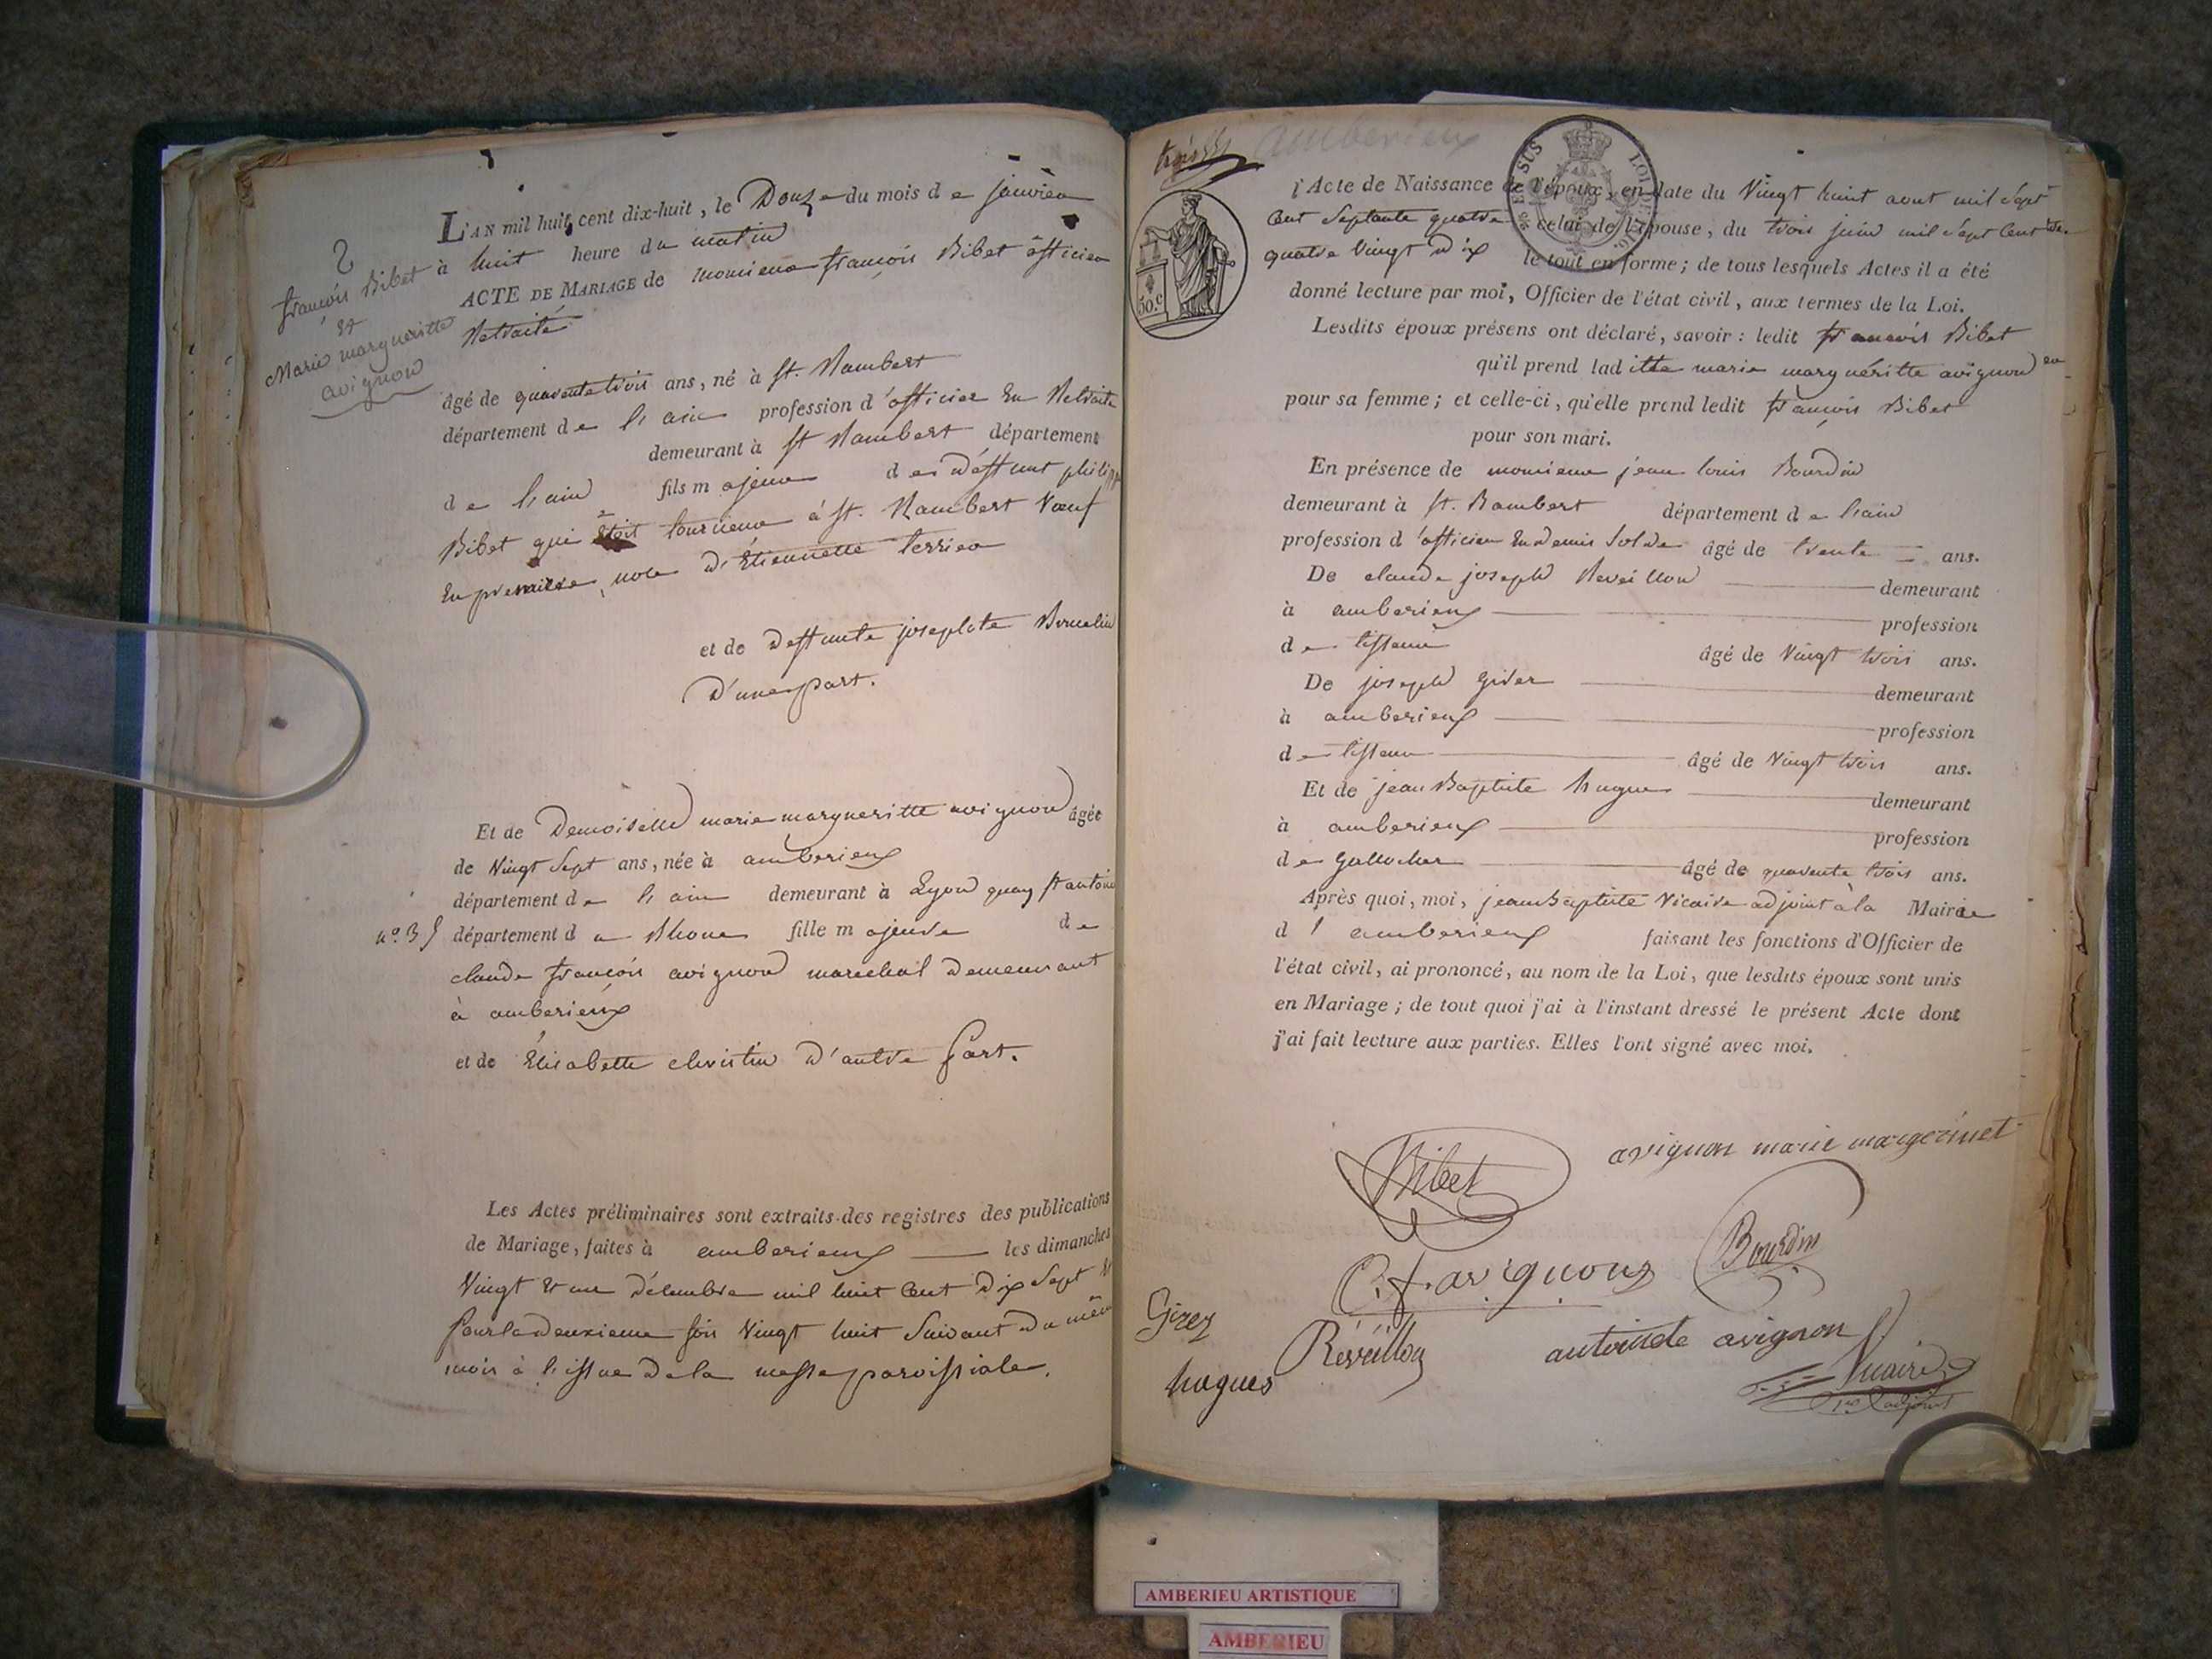 2
françois Bibet
et
Marie margueritte
avignon
L'AN mil huit cent dix-huit, le Douze du mois de janvier
à huit heure du matin
ACTE DE MARIAGE de monsieur françois Bibet officier
Retraité
âgé de quarente trois ans, né à St. Rambert
département de l'ain profession d'officier En Retraite
demeurant à St Rambert département
de l'ain fils majeur de deffunt philippe
Bibet qui étoit tourneur à St. Rambert Veuf
En premiere noce d'Etiennette terrier
et de deffunte josephte
D'une part.
Et de Demoiselle marie margueritte avignon âgée
de Vingt Sept ans, née à amberieux
département de l'ain demeurant à Lyon quay St antoine
nº 35 département du Rhone fille majeure de
claude françois avignon marechal demeurant
à amberieux
et de Elisabette christin D'autre part.
Les Actes préliminaires sont extraits des registres des publications
de Mariage, faites à amberieux les dimanches
Vingt et un décembre mil huit Cent Dix Sept Et
pour la deuxieme fois Vingt huit Suivant du même
mois à l'issue de la messe paroissiale.
amberieux
EN SUS
LOI DE 18
50.c
l'Acte de Naissance de l'époux, en date du Vingt huit aout mil Sept
Cent Septante quatre celui de l'Epouse, du trois juin mil Sept Cent
quatre Vingt Dix le tout en forme; de tous lesquels Actes il a été
donné lecture par moi, Officier de l'état civil, aux termes de la Loi.
Lesdits époux présens ont déclaré, savoir: ledit françois Bibet
qu'il prend laditte marie marguéritte avignon
pour sa femme; et celle-ci, qu'elle prend ledit françois Bibet
pour son mari.
En présence de monsieur jean louis Bourdin
demeurant à St. Rambert département de l'ain
profession d'officier En demis Solde âgé de trente ans.
De claude joseph Reveillon demeurant
à amberieux profession
de tisseur âgé de Vingt trois ans.
De joseph girer demeurant
à amberieux profession
de tisseur âgé de Vingt trois ans.
Et de jean Baptiste hugues demeurant
à amberieux profession
de gallocher âgé de quarente trois ans.
Après quoi, moi, jean Baptiste Vicaire adjoint à la Mairie
d'amberieux faisant les fonctions d'Officier de
l'état civil, ai prononcé, au nom de la Loi, que lesdits époux sont unis
en Mariage; de tout quoi j'ai à l'instant dressé le présent Acte dont
j'ai fait lecture aux parties. Elles l'ont signé avec moi.
Bibet avignon marie margerinet
C. f. avignon Bourdin
Girer
Réveillon antoinete avignon
hugues Vicaire
adjoint
AMBERIEU ARTISTIQUE
AMBERIEU